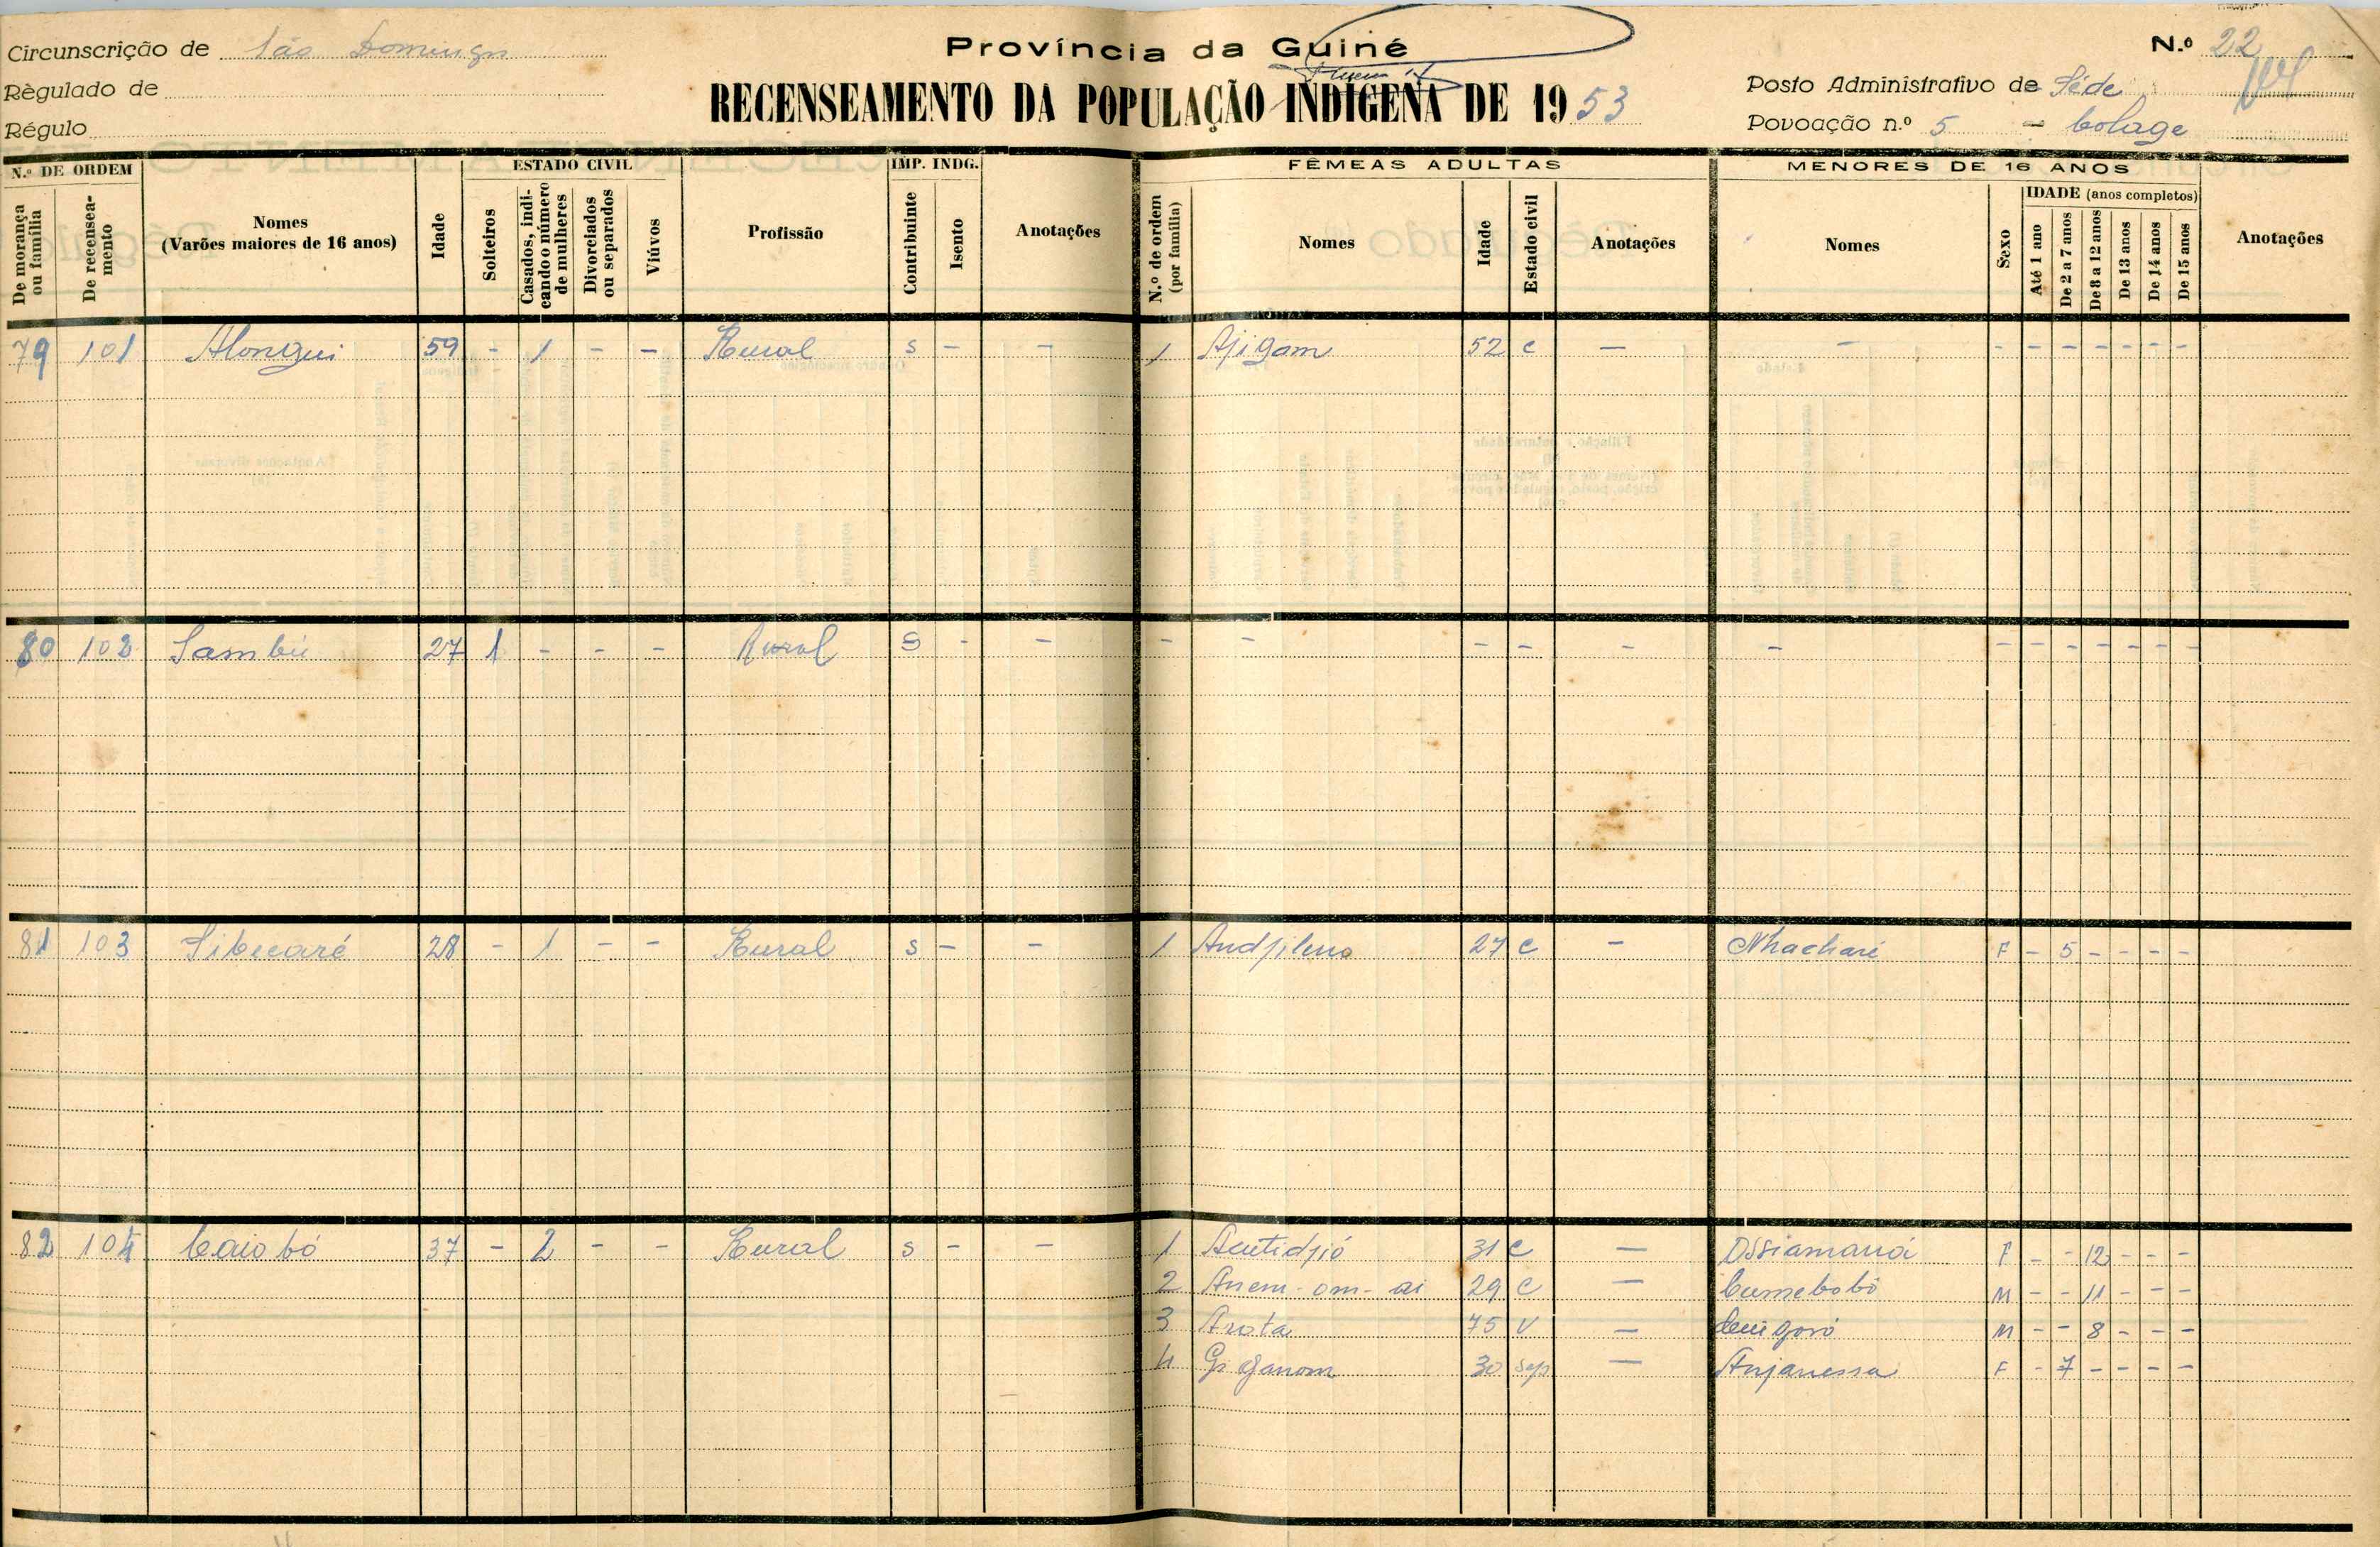 Circunscrição de São Domingos
Règulado de
Régulo
Província da Guiné
RECENSEAMENTO DA POPULAÇÃO INDÍGENA DE 1953
N.º 22
Posto Administrativo de Séde
Povoação n.º 5 - Colage
N.º DE ORDEM
De morança ou família
De recenseamento
Nomes
(Varões maiores de 16 anos)
Idade
ESTADO CIVIL
Solteiros
Casados, indicando o número de mulheres
Divorciados ou separados
Viúvos
Profissão
IMP. INDG.
Contribuinte
Isento
Anotações
FÊMEAS ADULTAS
N.º de ordem (por família)
Nomes
Idade
Estado civil
Anotações
MENORES DE 16 ANOS
Nomes
Sexo
IDADE (anos completos)
Até 1 ano
De 2 a 7 anos
De 8 a 12 anos
De 13 anos
De 14 anos
De 15 anos
Anotações
79 101 Alongui 59 - 1 - - Rural s - - 1 Ajigam 52 c - - - - - - - - -
80 102 Sambú 27 1 - - - Rural s - - - - - - - - - - - - - - -
81 103 Sibecaré 28 - 1 - - Rural s - - 1 Andjilena 27 c - Nhacharé F - 5 - - - -
82 104 Caiobó 37 - 2 - - Rural s - - 1 Acutidjió 31 c - Ossiamaná F - - 12 - - -
2 Anem-om-ai 29 c - Cumebobó M - - 11 - - -
3 Arota 75 v - M - - 8 - - -
4 Giganom 30 sep - Anjanessa F - 7 - - - -